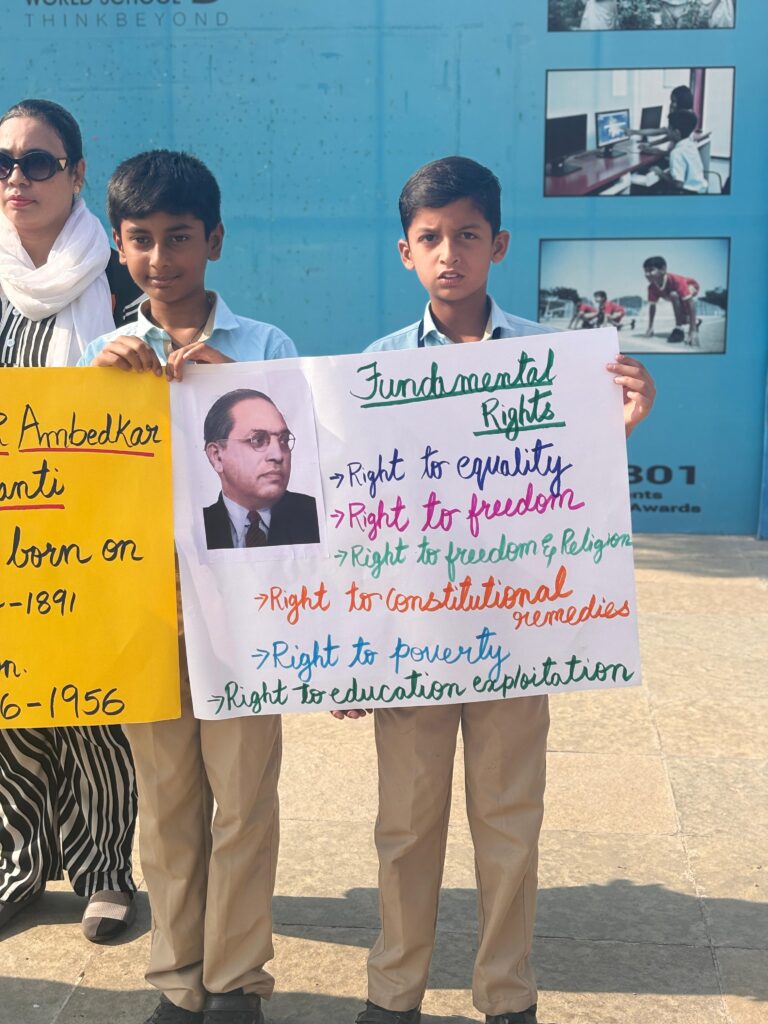 WORLD SCHOOL
THINKBEYOND
Ambedkar
anti
born on
-1891
n.
6-1956
Fundamental
Rights
→Right to equality
→Right to freedom
→Right to freedom & Religion
→Right to constitutional
remedies
→Right to poverty
→Right to education exploitation
801
nts
Awards